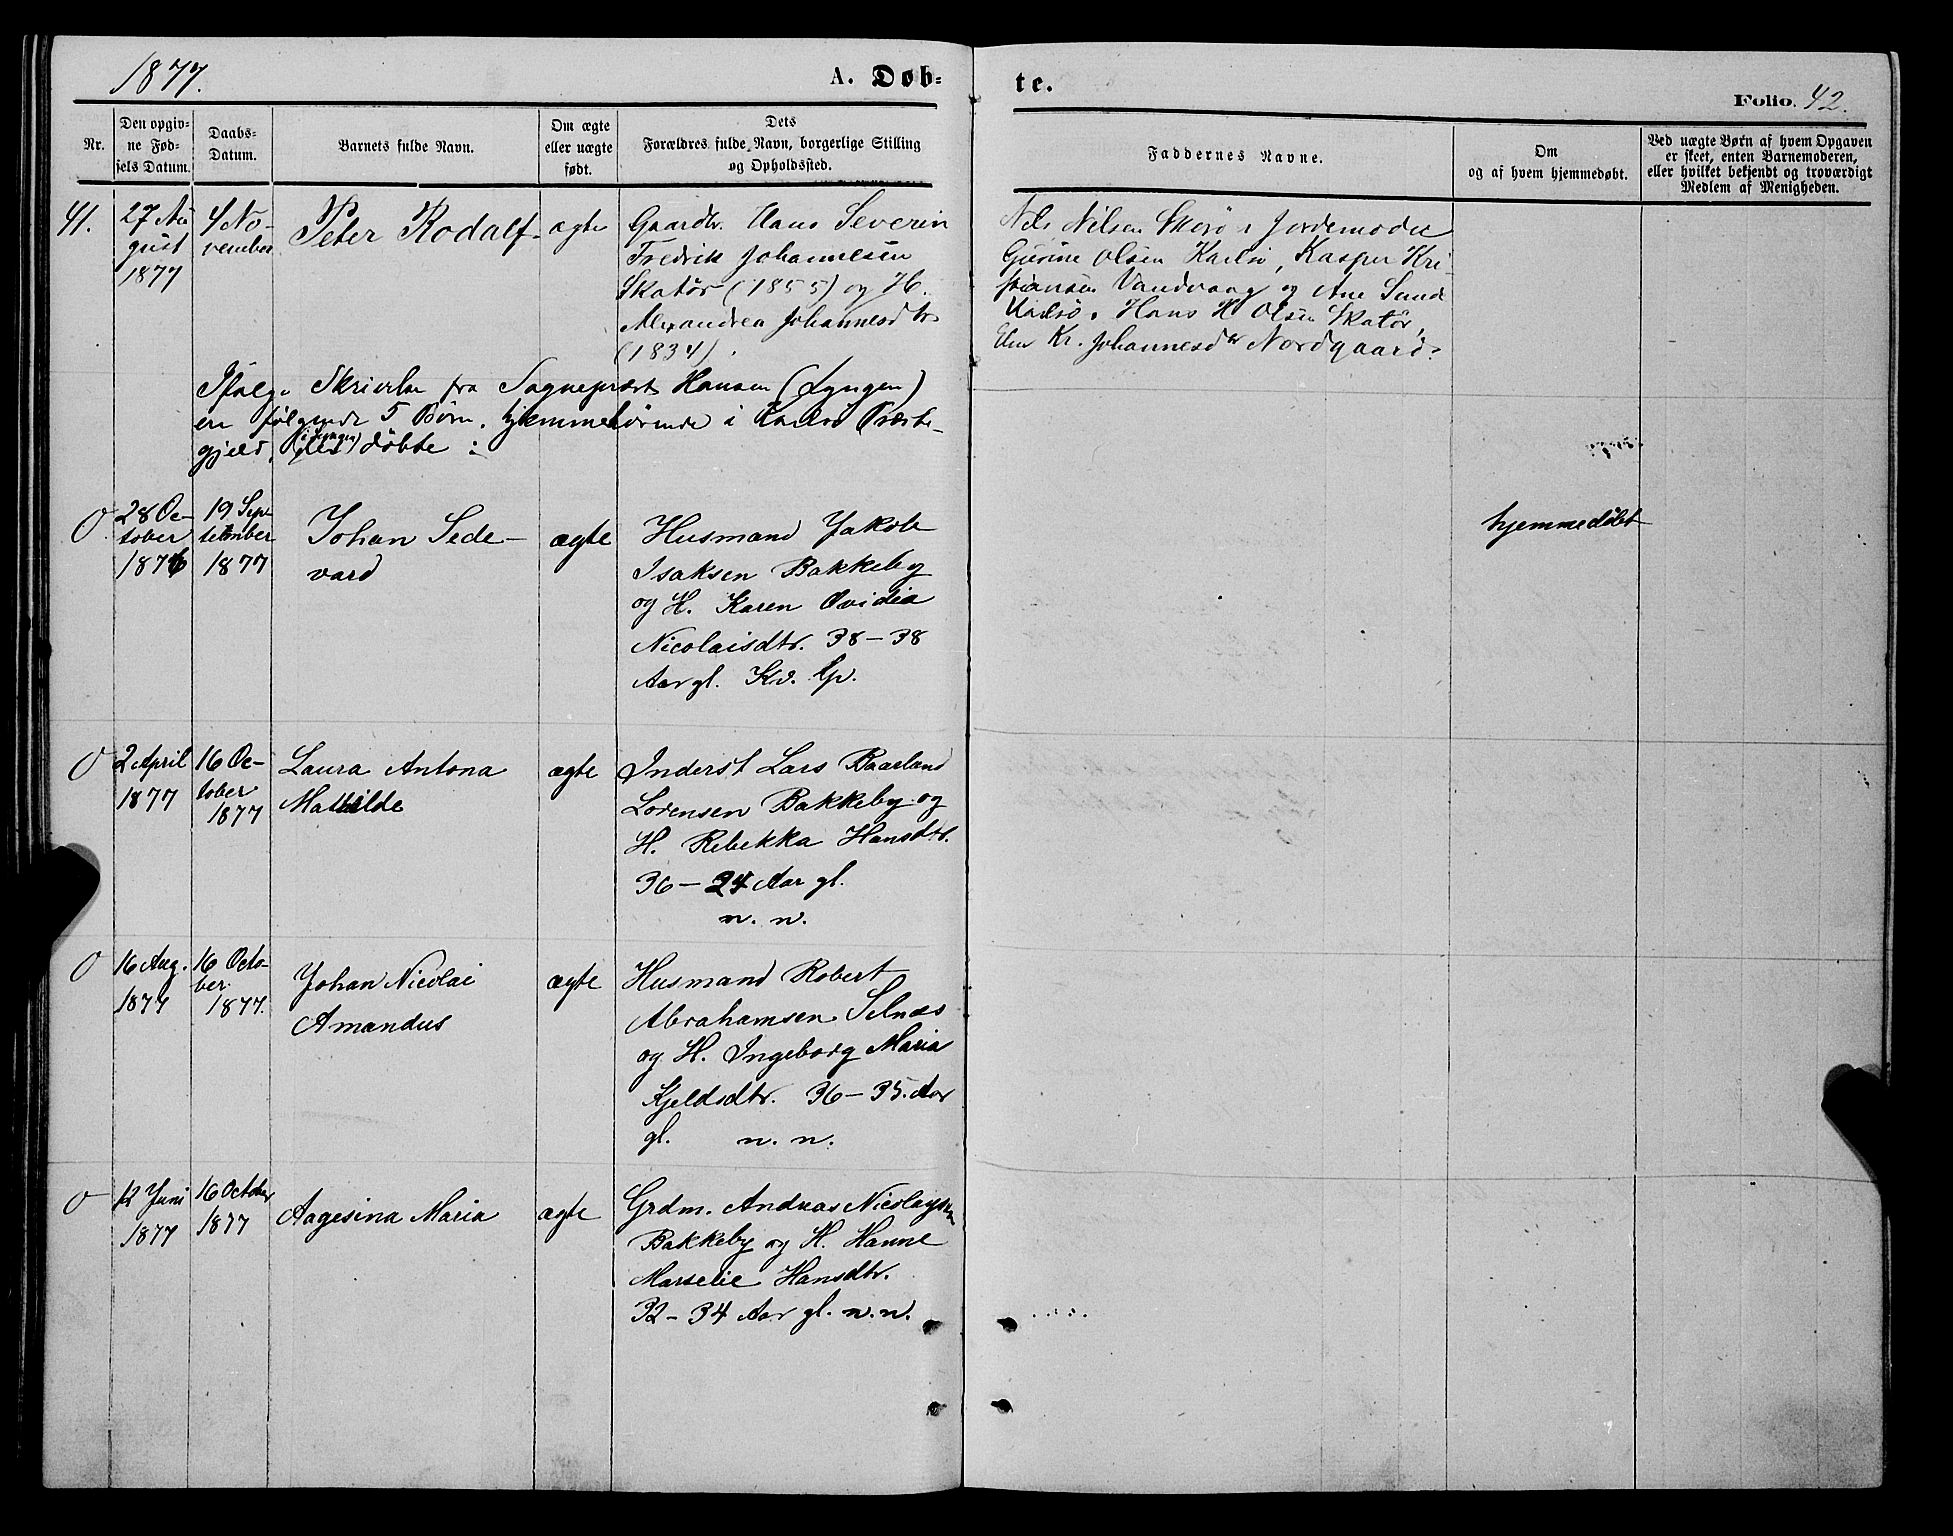 1877.
A. Døb-
te.
Folio. 42.
Nr.
Den opgiv-
ne Fød-
sels Datum.
Daabs-
Datum.
Barnets fulde Navn.
Om ægte
eller uægte
født.
Dets
Forældres fulde Navn, borgerlige Stilling
og Opholdssted.
Faddernes Navne.
Om
og af hvem hjemmedøbt.
Ved uægte Børn af hvem Opgaven
er skeet, enten Barnemoderen,
eller hvilket bekjendt og troværdigt
Medlem af Menigheden.
41.
27 Au
gust
1877
4 No-
vember
Peter Rodalf
ægte
Gaardbr. Hans Severin
Fredrik Johannesen
Skatør (1855) og H.
Alexandrea Johannesdtr
(1834).
Nels Nilsen Skorø, Jordemoder
Gjurine Olsen Karlsø, Kasper Kri-
stiansen Vandvaag og Ane Sand
Karlsø, Hans H Olsen Skatør,
Elen Kr. Johannesdtr Nordgaard.
Ifølge Skrivelse fra Sognepræst Hansen (Lyngen)
er følgende 5 Børn, hjemmehørende i Karlsø Præste-
gjeld, (i Lyngen) døbte :
0
28 Oc-
tober
1876
19 Sep-
tember
1877
Johan Sede-
vard
ægte
Husmand Jakob
Isaksen Bakkeby
og H. Karen Ovidia
Nicolaisdtr. 38-38
Aar gl. Kv. Lp.
hjemmedøbt
0
2 April
1877
16 Oc-
tober
1877
Laura Antona
Mathilde
ægte
Inderst Lars Baarland
Lorensen Bakkeby og
H. Rebekka Hansdtr.
36-24 Aar gl.
n. n.
0
16 Aug.
1877
16 Octo-
ber
1877.
Johan Nicolai
Amandus
ægte
Husmand Robert
Abrahamsen Selnæs
og H. Ingeborg Maria
Kjeldsdtr. 36-35. Aar
gl. n. n.
0
12 Juni
1877
16 October
1877
Aagesina Maria
ægte
Grdm. Andreas Nicolaysen
Bakkeby og H. Hanne
Marselie Hansdtr.
32-34 Aar gl. n. n.